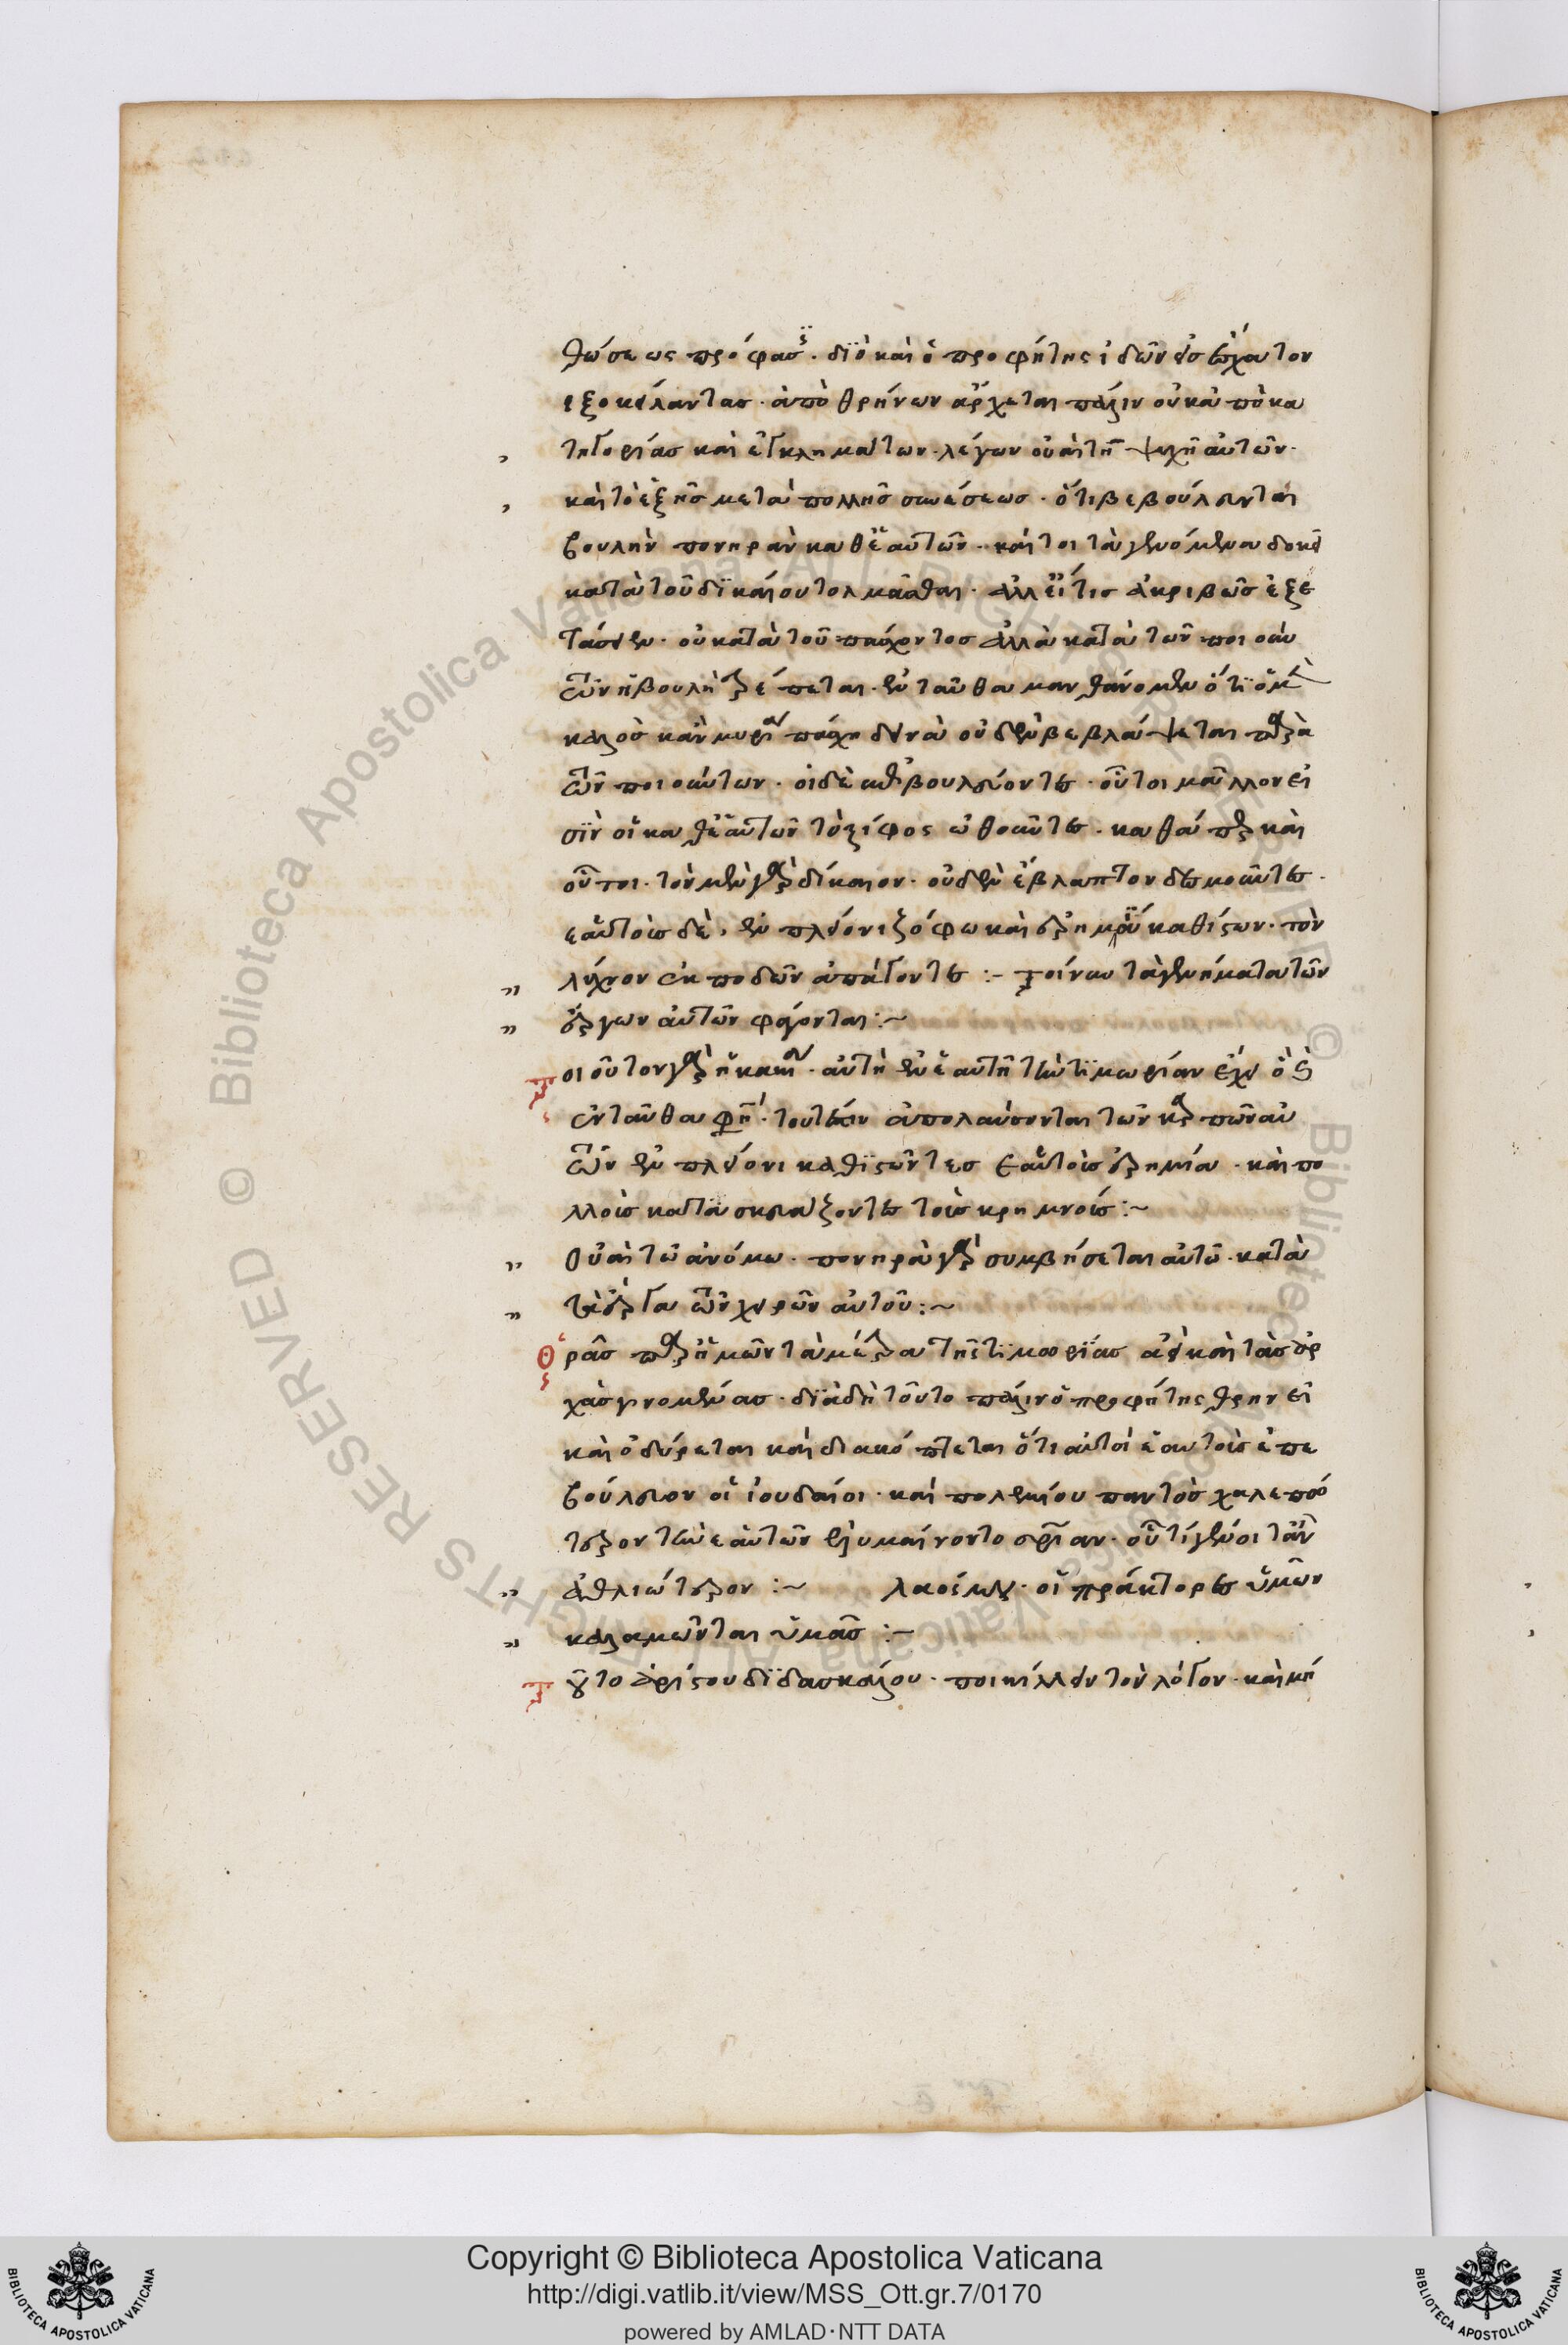 θώσεως πρόφασις. διὸ καὶ ὁ προφήτης ἰδὼν εἰς ἔσχατον
ἐξοκείλαντας. ἀπὸ θρήνων ἄρχεται πάλιν οὐκ ἀπὸ κα
τηγορίας καὶ ἐγκλημάτων. λέγων οὐαὶ τῆ ψυχῆ αὐτῶν.
καὶ τὸ ἑξῆς μετὰ πολλῆς συνέσεως. ὅτι βεβούλευνται
βουλὴν πονηρὰν καθ' ἑαυτῶν. καίτοι τὰ γενόμενα δοκεῖ
κατὰ τοῦ δικαίου τολμᾶσθαι. ἀλλ' εἴ τις ἀκριβῶς ἐξε
τάσειεν. οὐ κατὰ τοῦ πάσχοντος ἀλλὰ κατὰ τῶν ποιούν
των ἡ βουλὴ τρέπεται. ἐνταῦθα μανθάνομεν ὅτι ὁ μὲν
καλὸς κἂν μυρία πάσχη δεινὰ οὐδὲν βεβλάψεται παρὰ
τῶν ποιούντων. οἱ δὲ ἐπιβουλεύοντες. οὗτοι μᾶλλον εἰ
σὶν οἱ καθ' ἑαυτῶν τὸ ξίφος ὠθοῦντες. καθάπερ καὶ
οὗτοι. τὸν μὲν γὰρ δίκαιον. οὐδὲν ἔβλαπτον δεσμοῦντες.
ἑαυτοὺς δὲ, ἐν πλείονι ζόφω καὶ ἐρημία καθίζων. τὸν
λύχνον ἐκποδὼν ἀπάγοντες :- τοίνυν τὰ γενήματα τῶν
ἔργων αὐτῶν φάγονται :~
Τοιοῦτον γὰρ ἡ κακία. αὐτὴ ἐν ἑαυτῆ τὴν τιμωρίαν ἔχει ὃ δὲ
ἐνταῦθα φησί. τουτέστιν ἀπολαύσονται τῶν καρπῶν αὐ
τῶν ἐν πλείονι καθιζῶντες ἑαυτοὺς ἐρημία. καὶ πο
λλοὺς κατασκευάζοντες τοὺς κρημνούς :~
Οὐαὶ τῶ ἀνόμω. πονηρὰ γὰρ συμβήσεται αὐτῶ. κατὰ
τὰ ἔργα τῶν χειρῶν αὐτοῦ :~
Ὁρᾶς παρ' ἡμῶν τὰ μέτρα τῆς τιμωρίας ἀεὶ καὶ τὰς ἀρ
χὰς γινομένας. διὰ δὴ τοῦτο πάλιν ὁ προφήτης θρηνεῖ
καὶ ὀδύρεται καὶ διακόπτεται ὅτι αὐτοὶ ἑαυτοῖς ἐπε
βούλευον οἱ ἰουδαῖοι. καὶ πολεμίου παντὸς χαλεπώ
τερον τὴν ἑαυτῶν ἐλυμαίνοντο σωτηρίαν. οὗ τί γένοιτ' ἂν
ἀθλιώτερον :~ λαός μου. οἱ πράκτορες ὑμῶν
καλαμῶνται ὑμᾶς :~
Τοῦτο ἀρίστου διδασκάλου. ποικίλλειν τὸν λόγον. καὶ μὴ
Copyright © Biblioteca Apostolica Vaticana
http://digi.vatlib.it/view/MSS_Ott.gr.7/0170
powered by AMLAD·NTT DATA